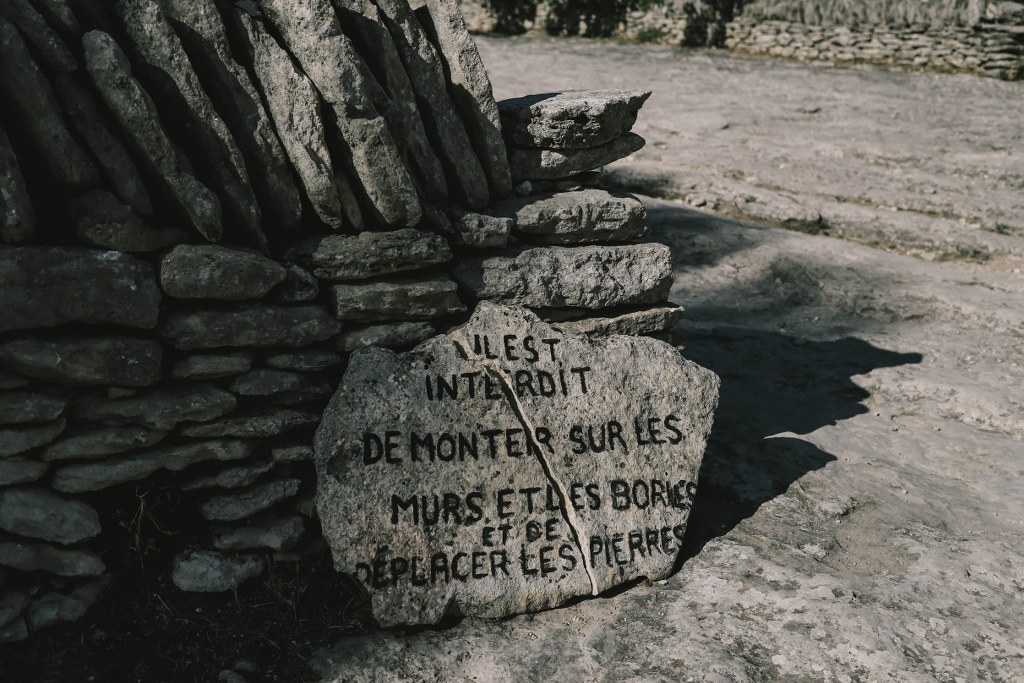 IL EST
INTERDIT
DE MONTER SUR LES
MURS ET LES BORIES
ET DE
DÉPLACER LES PIERRES